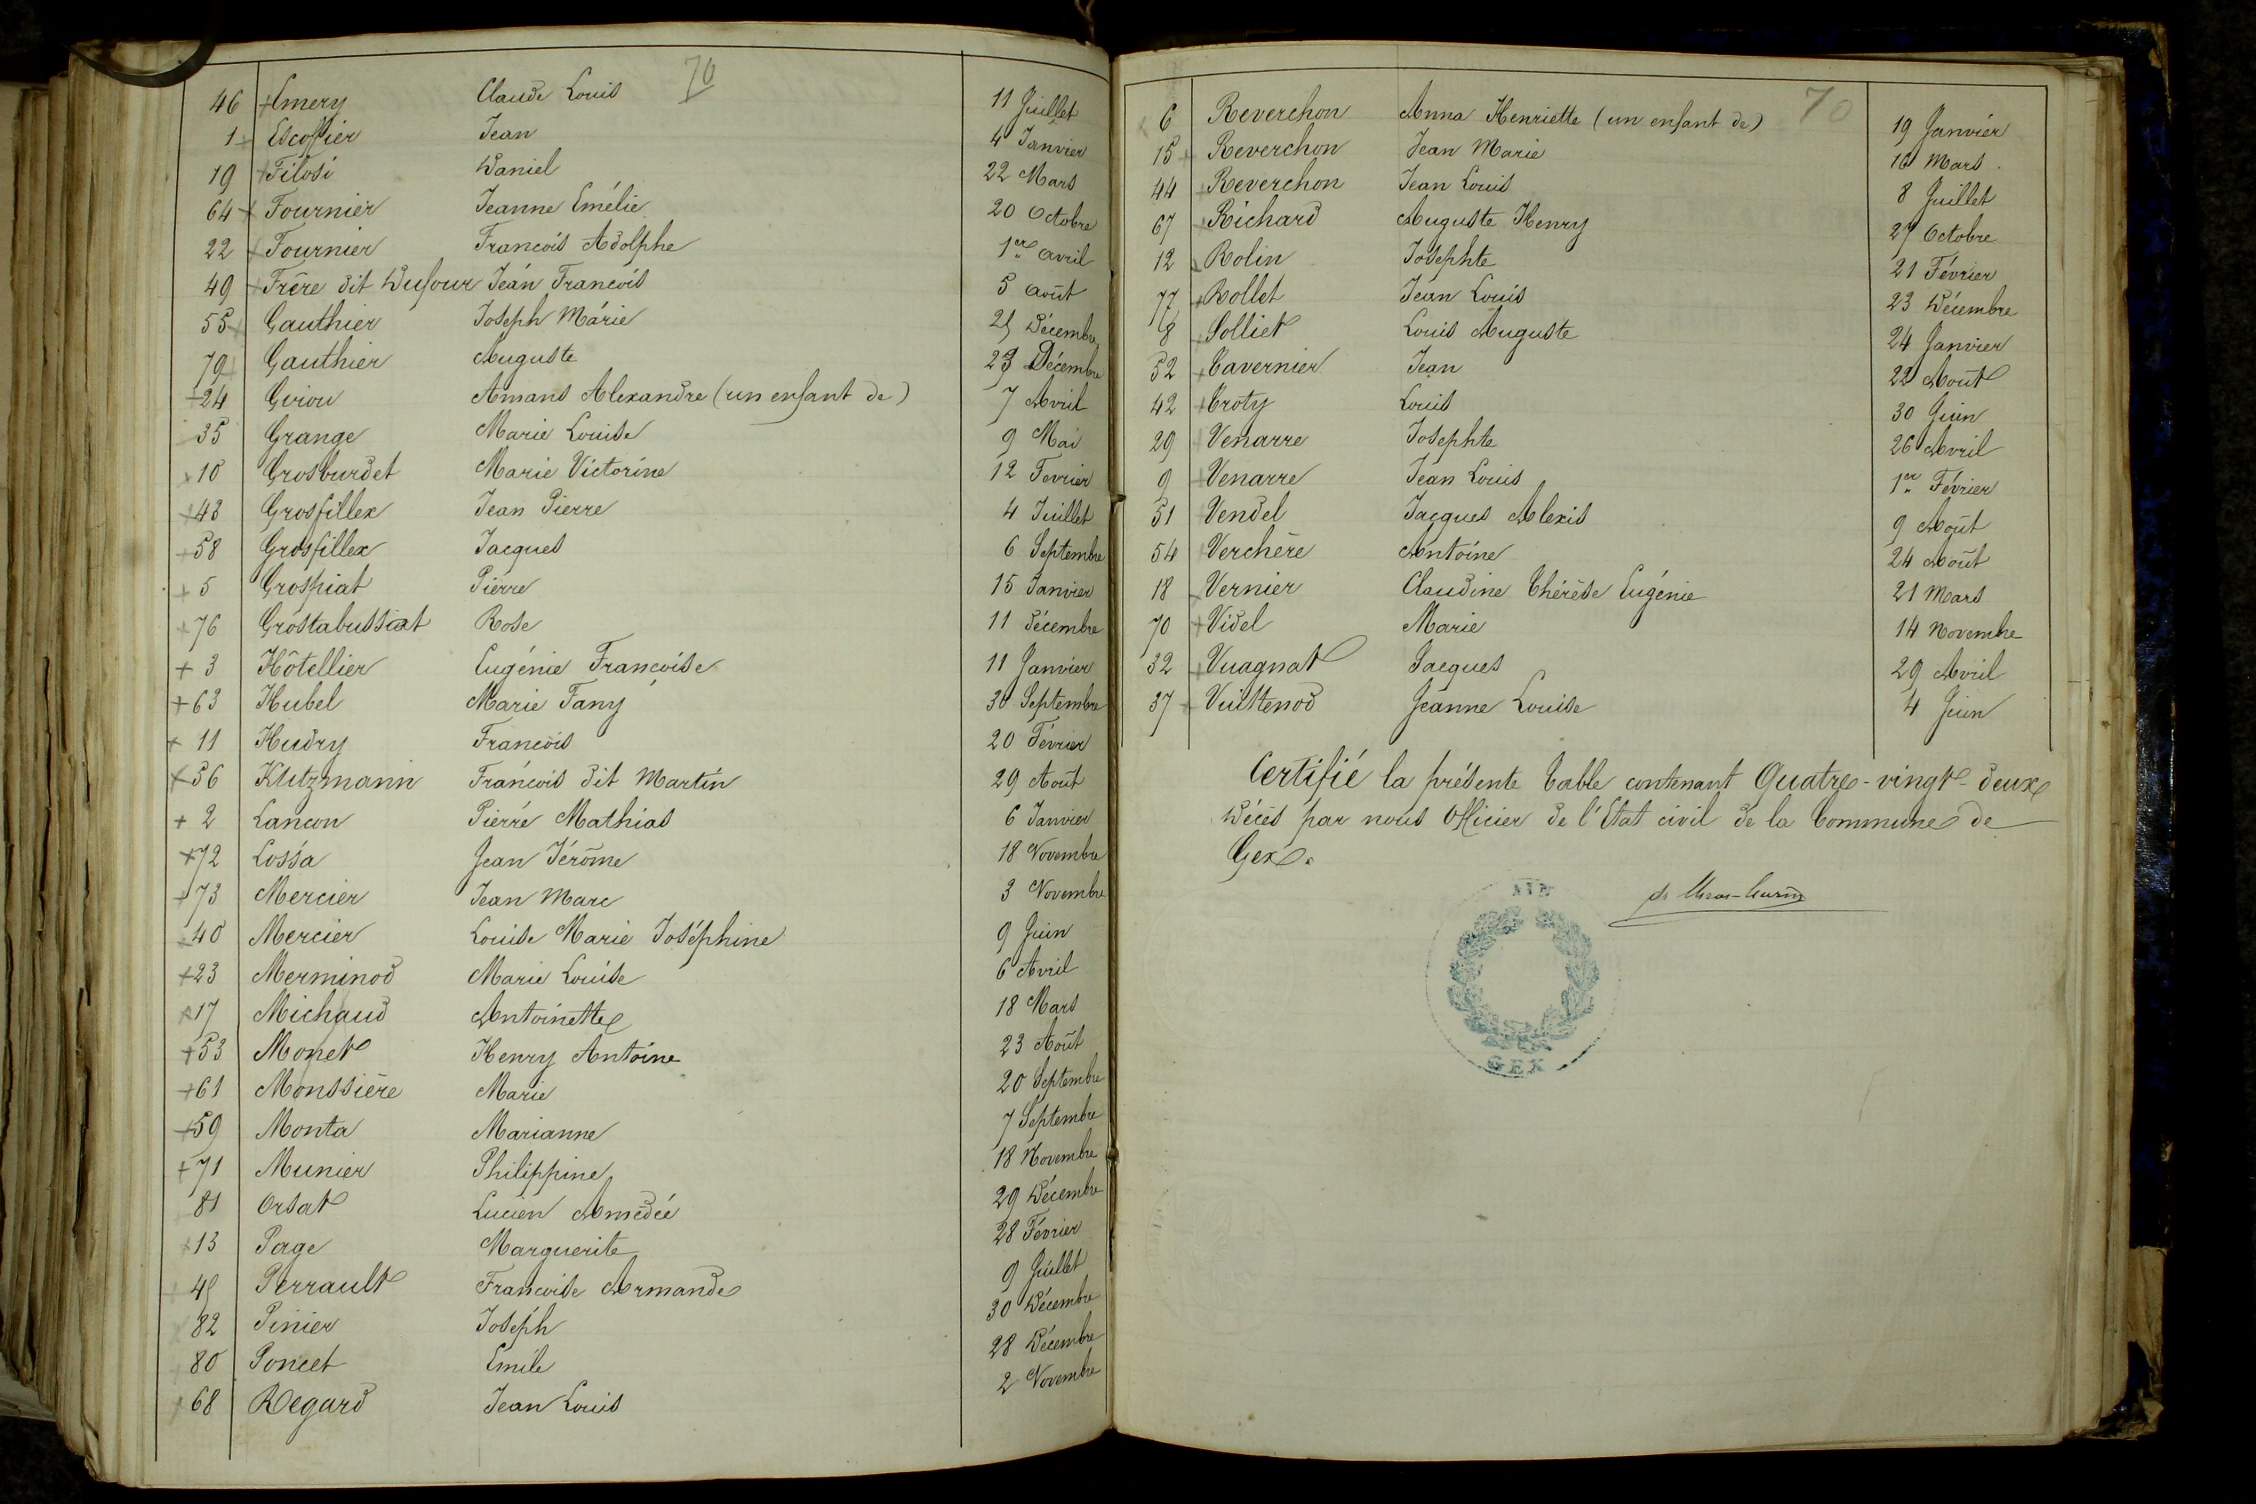 70
46 Emery Claude Louis 11 Juillet
1 Escoffier Jean 4 Janvier
19 Filosi Daniel 22 Mars
64 Fournier Jeanne Emélie 20 Octobre
22 Fournier François Adolphe 1er avril
49 Frère dit Dufour Jean François 5 août
55 Gauthier Joseph Marie Décembre
79 Gauthier Auguste 23 Décembre
24 Girou Amans Alexandre (un enfant de) 7 Avril
35 Grange Marie Louise 9 Mai
10 Grosburdet Marie Victorine 12 Fevrier
43 Grosfillex Jean Pierre 4 Juillet
58 Grosfillex Jacques 6 Septembre
5 Grospiat Pierre 15 Janvier
76 Grostabussiat Rose 11 décembre
3 Hôtellier Eugénie Françoise 11 Janvier
63 Hubel Marie Fany 30 Septembre
11 Hudry François 20 Février
56 Klutzmann François dit Martin 29 Août
2 Lançon Pierre Mathias 6 Janvier
72 Lossa Jean Jérôme 18 Novembre
73 Mercier Jean Marc 3 Novembre
40 Mercier Louise Marie Joséphine 9 Juin
23 Merminod Marie Louise 6 Avril
17 Michaud Antoinette 18 Mars
53 Monet Henry Antoine 23 Août
61 Monssière Marie 20 Septembre
59 Monta Marianne 7 Septembre
71 Munier Philippine 18 Novembre
81 Orsat Lucien Amédée 29 Décembre
13 Page Marguerite 28 Février
45 Perrault Françoise Armande 9 Juillet
82 Pinier Joseph 30 Décembre
80 Poncet Emile 28 Décembre
68 Regard Jean Louis 2 Novembre
70
6 Reverchon Anna Henriette (un enfant de) 19 Janvier
15 Reverchon Jean Marie 16 Mars
44 Reverchon Jean Louis 8 Juillet
67 Richard Auguste Henry 27 Octobre
12 Rolin Josephte 21 Février
77 Rollet Jean Louis 23 Décembre
8 Solliet Louis Auguste 24 Janvier
52 Tavernier Jean 22 Août
42 Troty Louis 30 Juin
29 Venarre Josephte 26 Avril
9 Venarre Jean Louis 1er Février
51 Vendel Jacques Alexis 9 Août
54 Verchère Antoine 24 Août
18 Vernier Claudine Thérèse Eugénie 21 Mars
70 Videl Marie 14 Novembre
32 Vuagnat Jacques 29 Avril
37 Vuittenod Jeanne Louise 4 Juin
Certifié la présente Table contenant Quatre-vingt-deux
Décès par nous Officier de l'Etat civil de la Commune de
Gex.
GEX